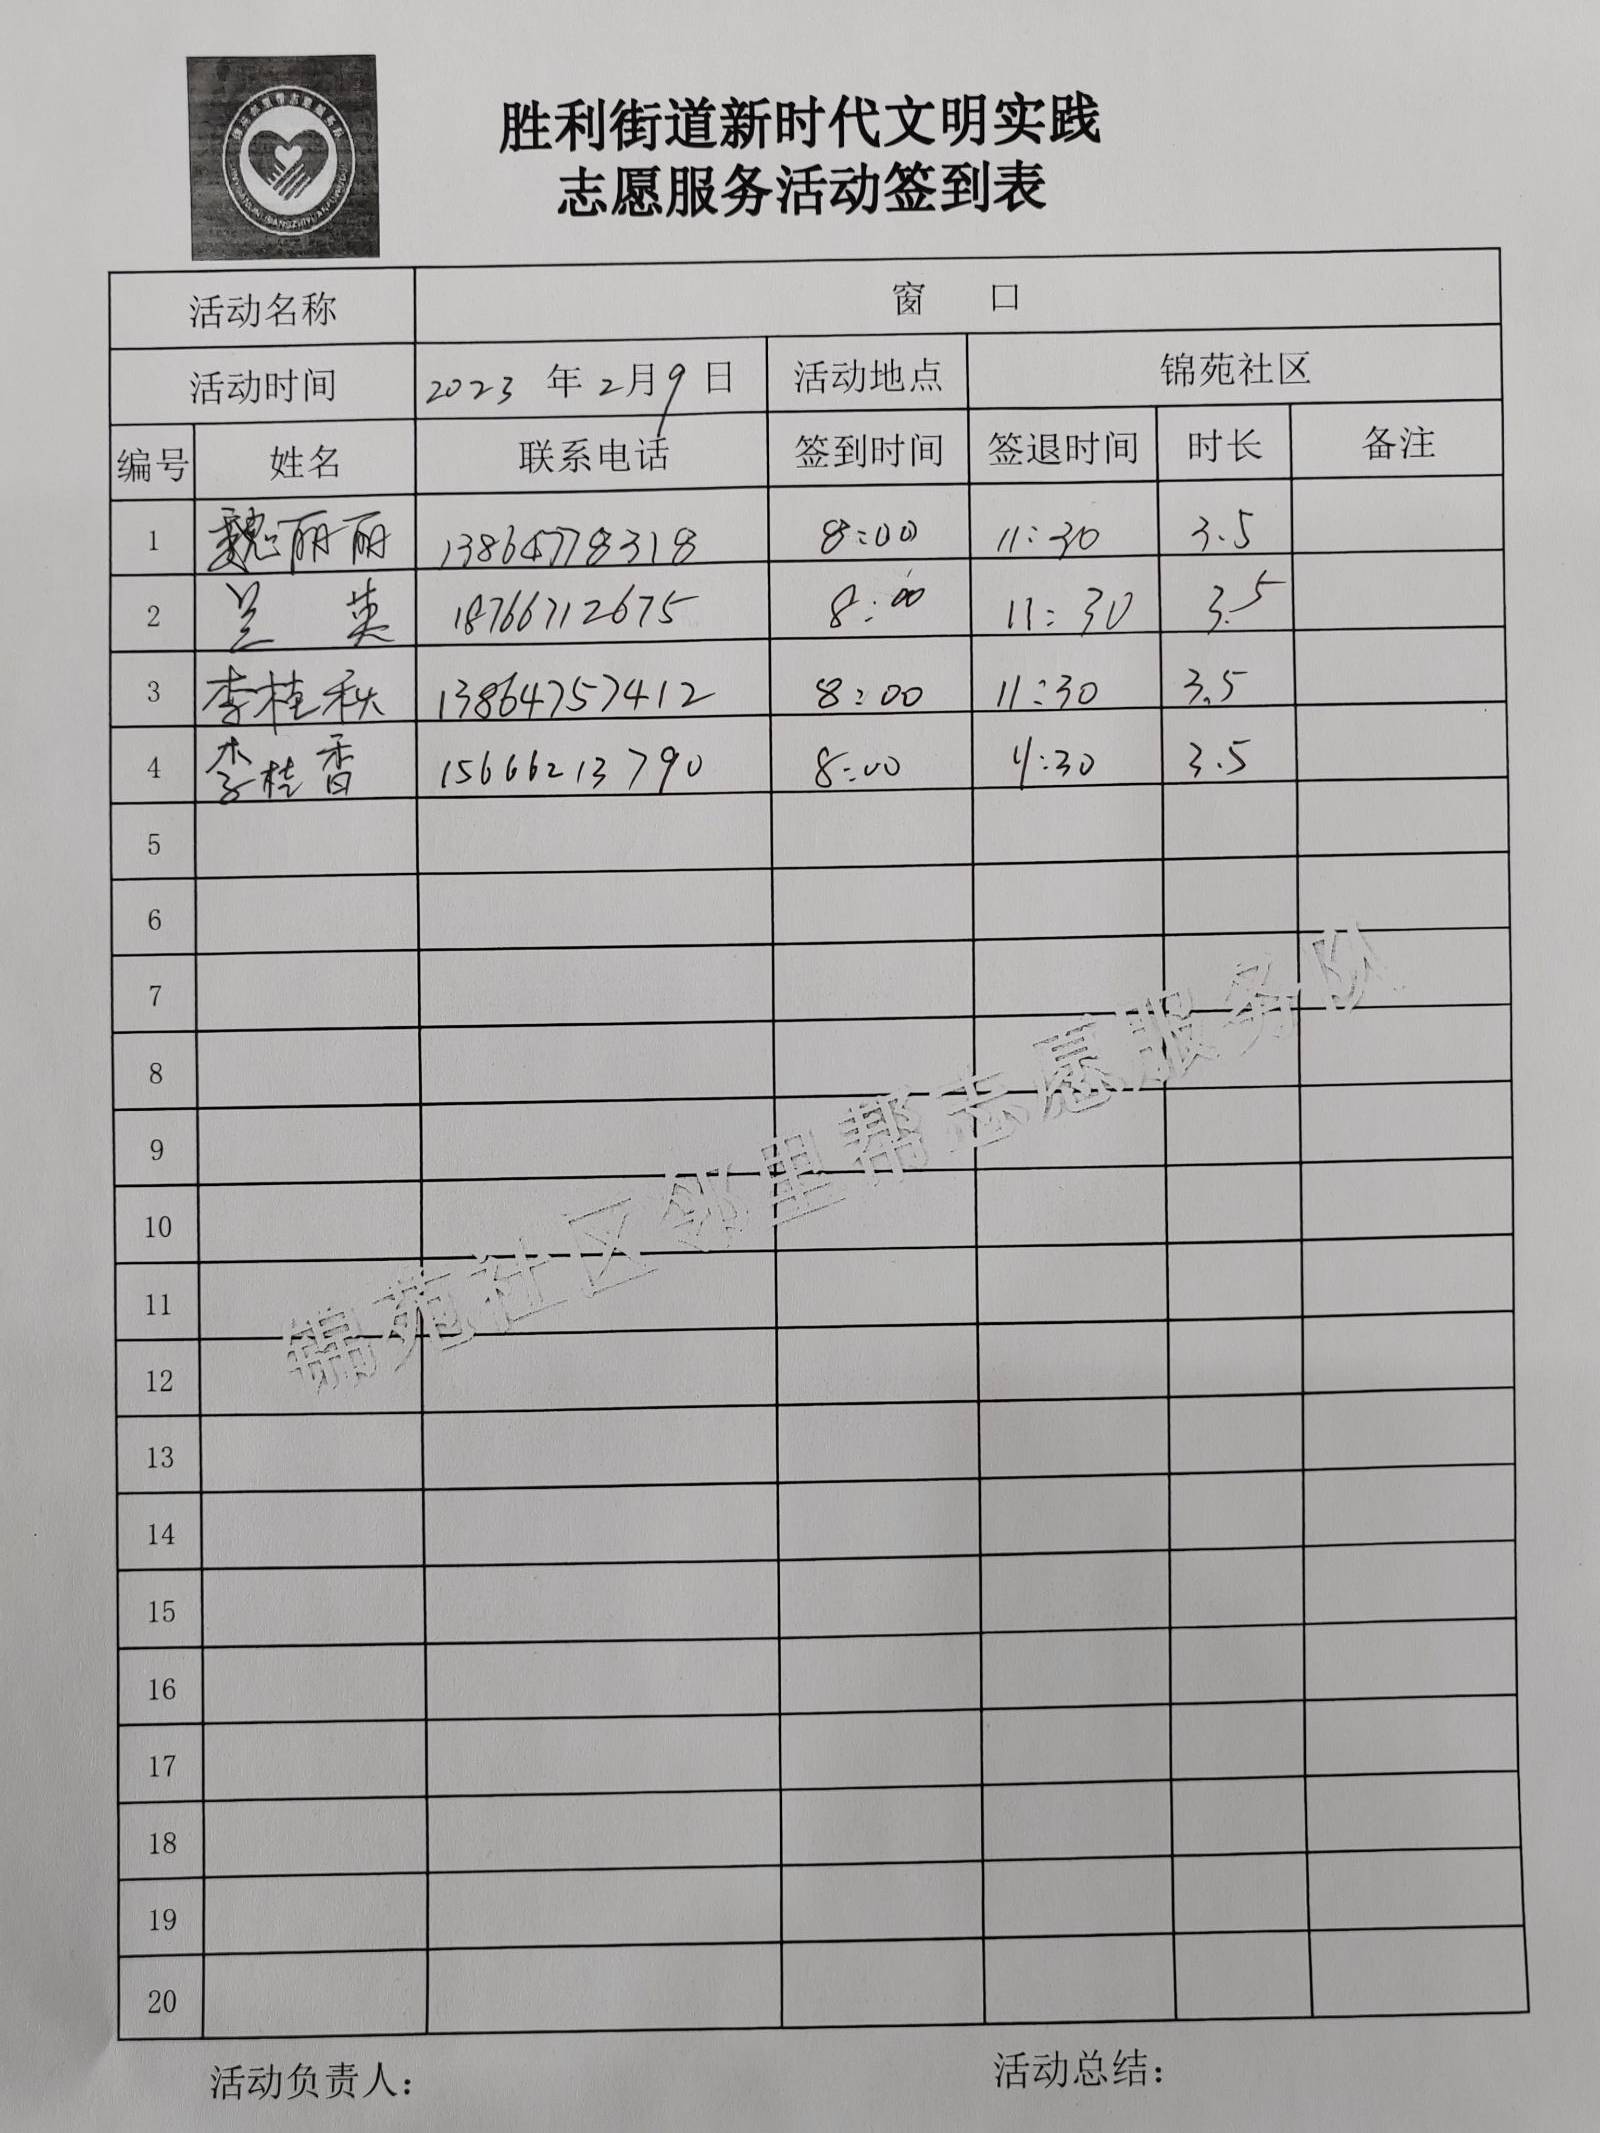 胜利街道新时代文明实践
志愿服务活动签到表
活动名称 窗 口
活动时间 2023 年 2月9日 活动地点 锦苑社区
编号 姓名 联系电话 签到时间 签退时间 时长 备注
1 魏丽丽 13864778318 8:00 11:30 3.5
2 兰 英 18766712675 8:00 11:30 3.5
3 李桂秋 13864757412 8:00 11:30 3.5
4 李桂香 15666213790 8:00 11:30 3.5
5
6
7
8
9
10
11
12
13
14
15
16
17
18
19
20
锦苑社区邻里帮志愿服务队
活动负责人: 活动总结: